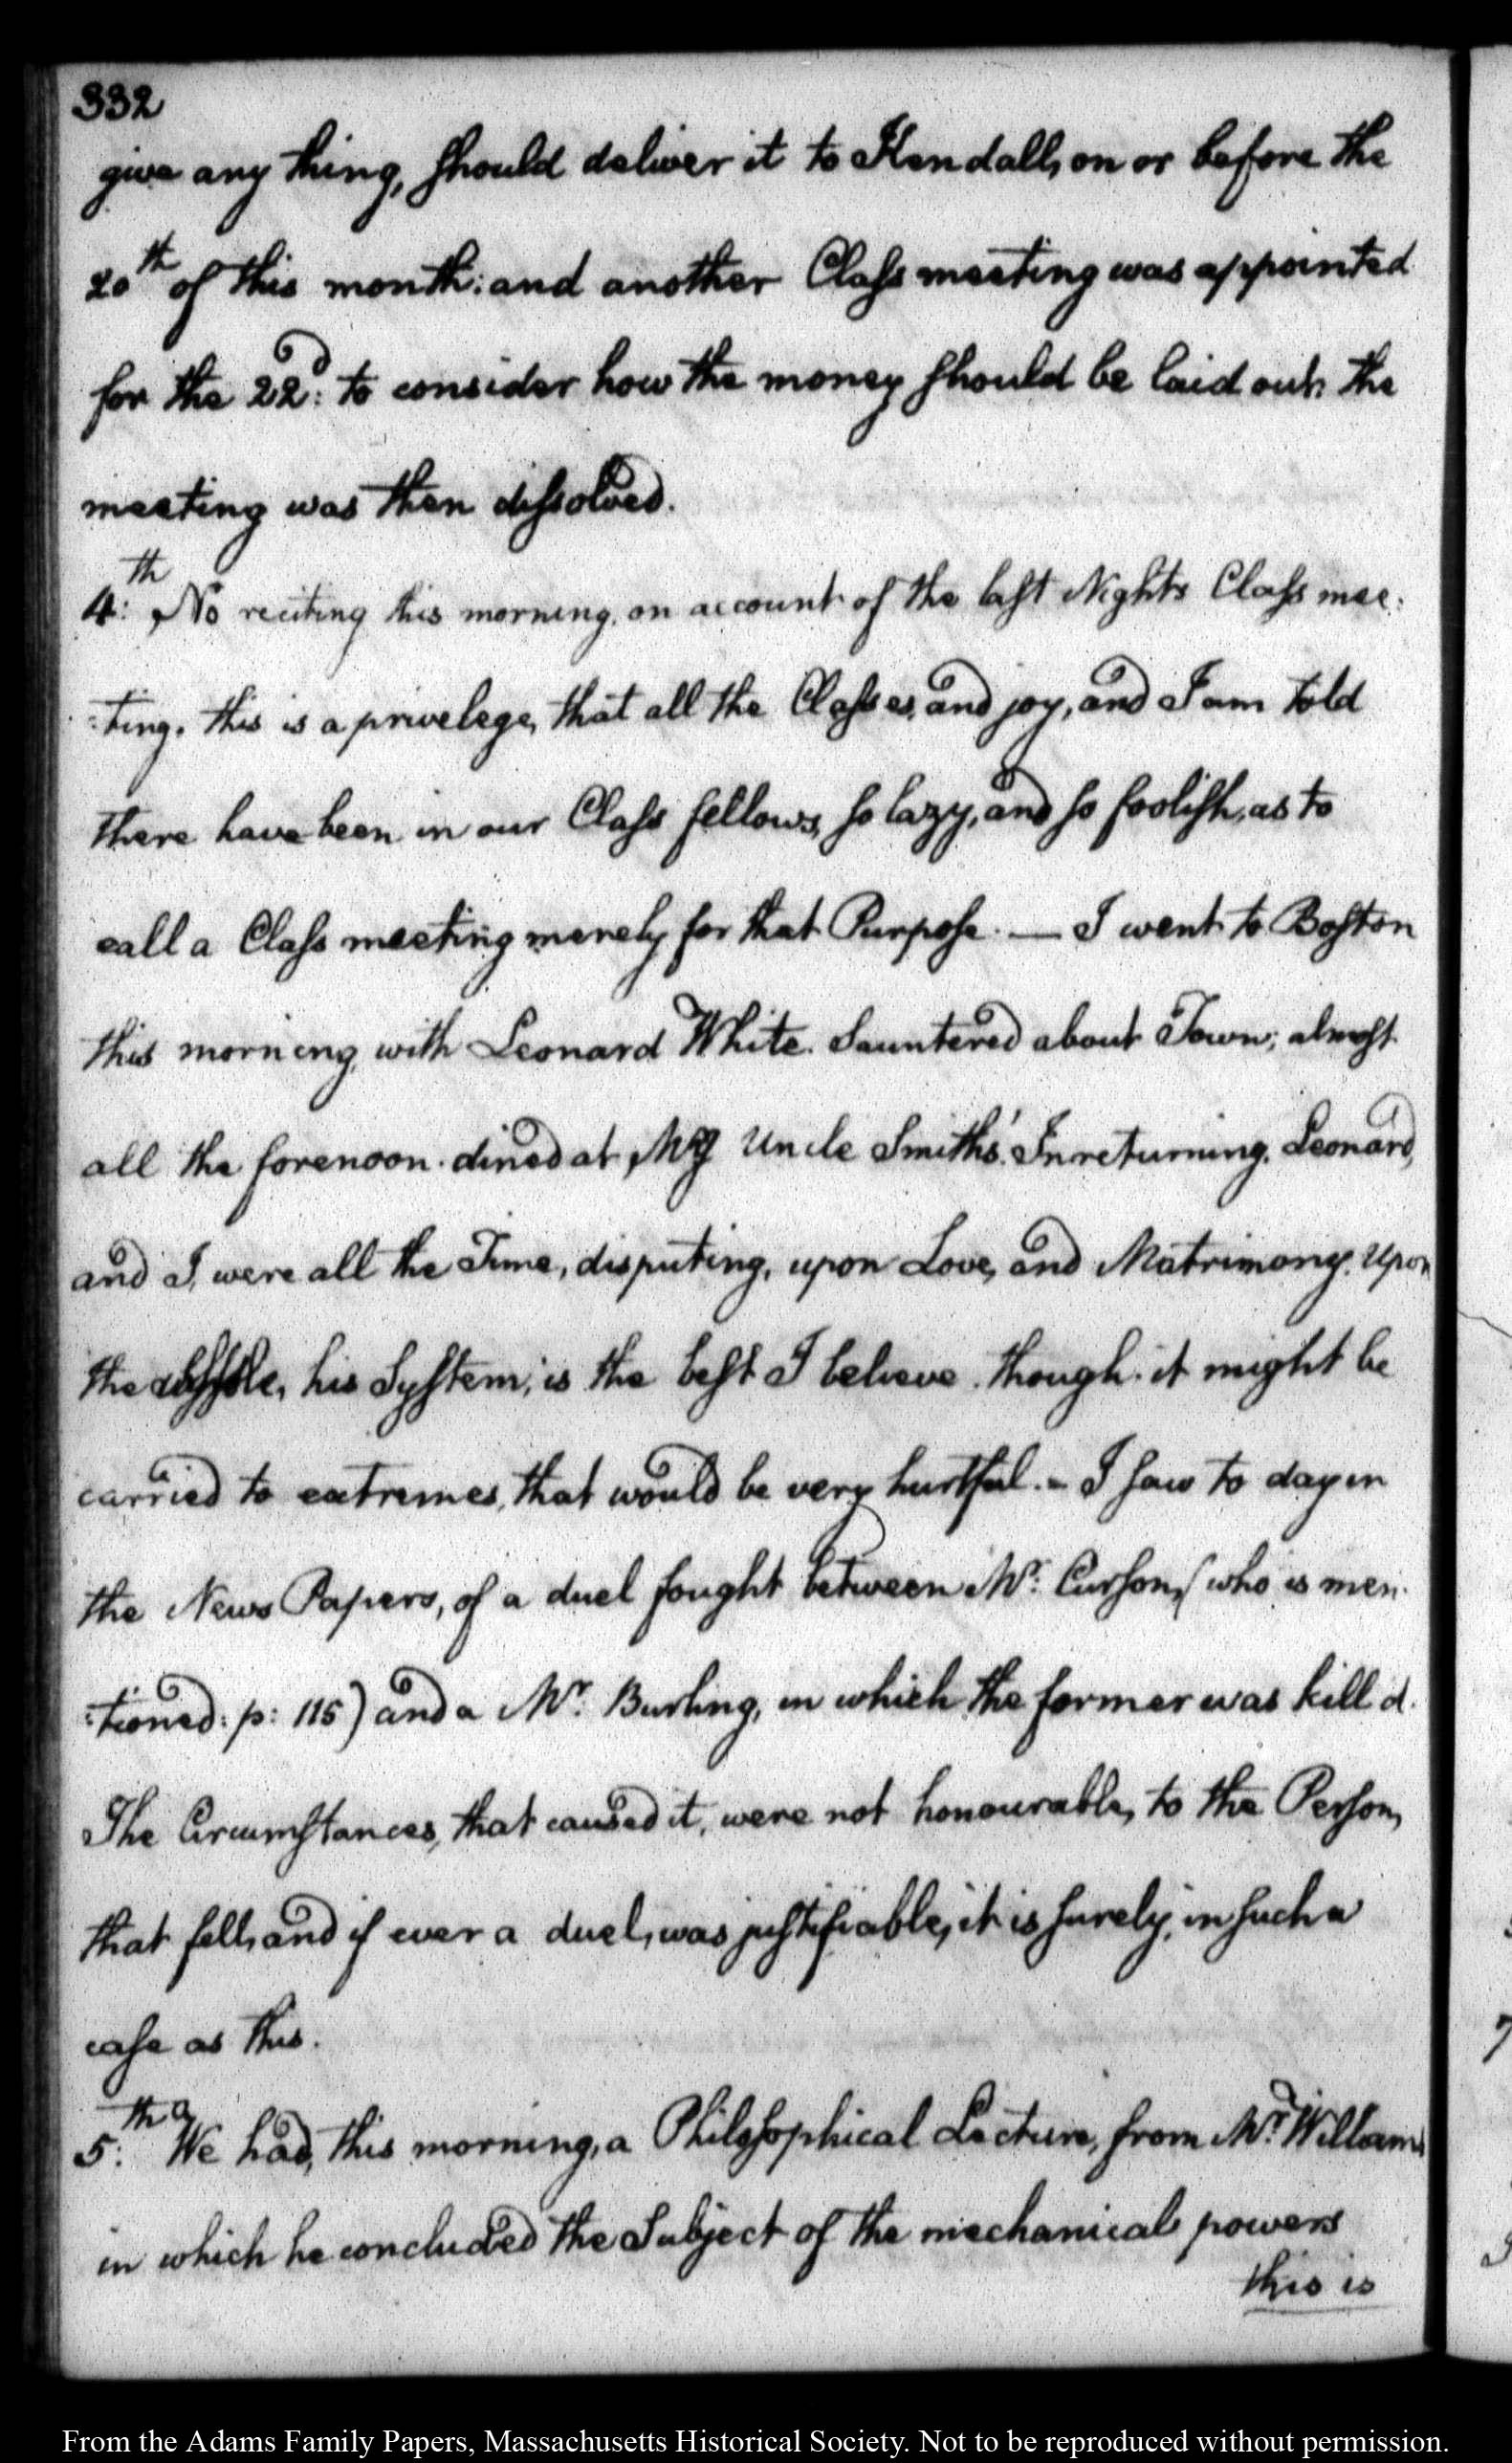 332
give any thing, should deliver it to Kendall, on or before the
20th of this month: and another Class meeting was appointed
for the 22d: to consider how the money should be laid out. the
meeting was then dissolved.
4:th No reciting this morning, on account of the last Nights Class mee:
:ting. this is a privelege, that all the Classes, and joy, and I am told
there have been in our Class fellows, so lazy, and so foolish, as to
call a Class meeting merely for that Purpose. — I went to Boston
this morning, with Leonard White. Sauntered about Town; almost
all the forenoon. dined at My Uncle Smiths'. In returning, Leonard,
and I, were all the Time, disputing, upon Love, and Matrimony. Upon
the whole, his System, is the best I believe. though it might be
carried to extremes, that would be very hurtful. - I saw to day in
the News Papers, of a duel fought between Mr: Curson, (who is men:
:tioned: p: 115) and a Mr. Burling, in which the former was kill'd.
The Circumstances, that caused it, were not honourable, to the Person,
that fell, and if ever a duel, was justifiable, it is surely, in such a
case as this.
5:th We had, this morning, a Philosophical Lecture, from Mr. Williams,
in which he concluded the Subject of the mechanical powers
this is
From the Adams Family Papers, Massachusetts Historical Society. Not to be reproduced without permission.